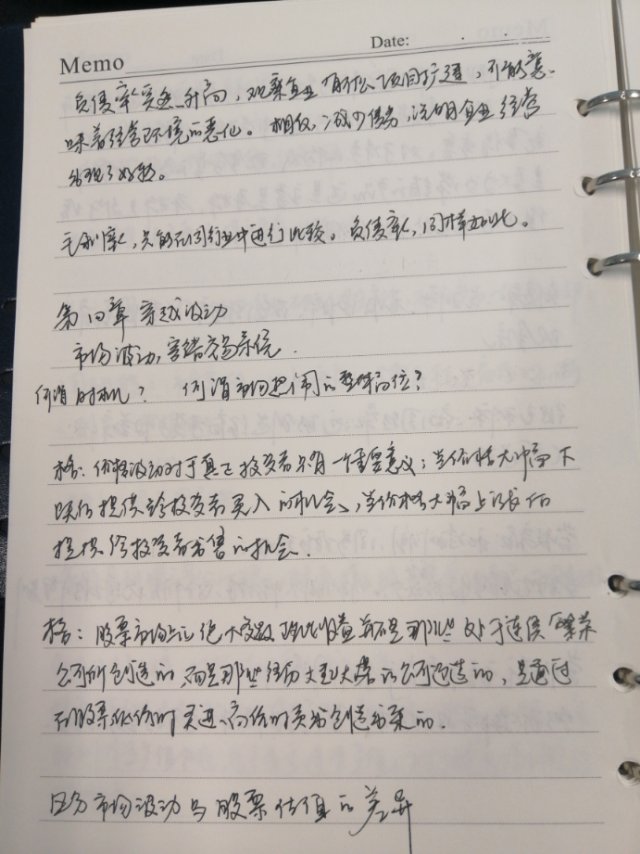 Memo Date: . .
负债率突然升高，观察企业有什么项目扩通，不能意
味着经营环境的恶化。相反，减少债务，说明企业经营
出现了好转。
毛利率，只能在同行业中进行比较。负债率，同样如此。
第四章 穿越波动
市场波动，寄结交易系统.
何谓时机？ 何谓市场想阐的整体高位？
格：价格波动对于真正投资者只有一个重要意义：当价格大幅下
跌后提供给投资者买入的机会、当价格大幅上涨后
提供给投资者出售的机会.
格：股票市场上的绝大多数 收益并不是那些处于连续繁荣
公司所创造的，而是那些经历大起大落的公司创造的，是通过
在股票低价时买进、高价时卖出创造出来的.
区分市场波动与股票估值的差异